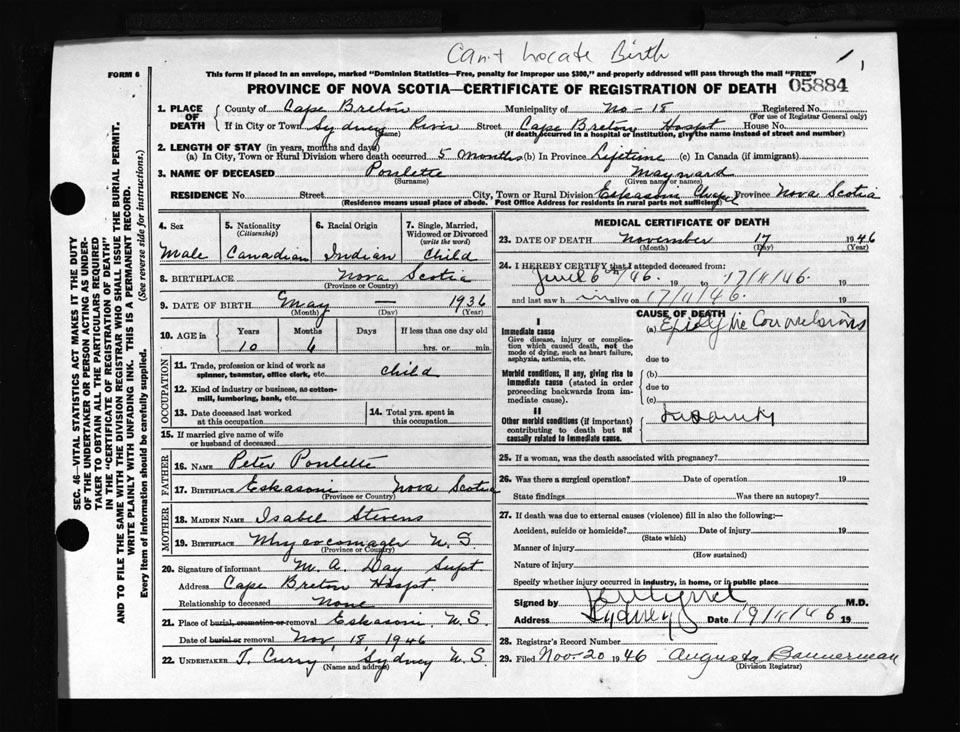 Can't Locate Birth
FORM 6
This form if placed in an envelope, marked "Dominion Statistics—Free, penalty for improper use $300," and properly addressed will pass through the mail "FREE"
PROVINCE OF NOVA SCOTIA—CERTIFICATE OF REGISTRATION OF DEATH
05884
1. PLACE OF DEATH
County of Cape Breton Municipality of No-18 Registered No.
(For use of Registrar General only)
If in City or Town Sydney River Street Cape Breton Hospt House No.
(Name) (If death occurred in a hospital or institution, give the name instead of street and number)
2. LENGTH OF STAY (in years, months and days)
(a) In City, Town or Rural Division where death occurred 5 months (b) In Province Lifetime (c) In Canada (if immigrant)
3. NAME OF DECEASED Poulette Maynard
(Surname) (Given name or names)
RESIDENCE No. Street City, Town or Rural Division Eskasoni Province Nova Scotia
(Residents means usual place of abode. Post Office Address for residents in rural parts not sufficient)
4. Sex
Male
5. Nationality (Citizenship)
Canadian
6. Racial Origin
Indian
7. Single, Married, Widowed or Divorced (write the word)
Child
8. BIRTHPLACE Nova Scotia
(Province or County)
9. DATE OF BIRTH May — 1936
(Month) (Day) (Year)
10. AGE in Years Months Days If less than one day old
10 6 hrs. or min.
OCCUPATION
11. Trade, profession or kind of work as spinner, teamster, office clerk, etc. child
12. Kind of industry or business, as cotton-mill, lumbering, bank, etc.
13. Date deceased last worked at this occupation
14. Total yrs. spent in this occupation
15. If married give name of wife or husband of deceased
FATHER
16. NAME Peter Poulette
17. BIRTHPLACE Eskasoni Nova Scotia
(Province or County)
MOTHER
18. MAIDEN NAME Isabel Stevens
19. BIRTHPLACE Whycocomagh N.S.
(Province or Country)
20. Signature of informant M. A. Day Supt.
Address Cape Breton Hospt.
Relationship to deceased None
21. Place of burial, cremation or removal Eskasoni N.S.
Date of burial or removal Nov, 18, 1946
22. UNDERTAKER T. Curry, Sydney N.S.
(Name and address)
MEDICAL CERTIFICATE OF DEATH
23. DATE OF DEATH November 17 1946
(Month) (Day) (Year)
24. I HEREBY CERTIFY that I attended deceased from:
June 6th/46. 19 to 17/11/46. 19
and last saw h im alive on 17/11/46. 19
CAUSE OF DEATH
I
Immediate cause
Give disease, injury or complication which caused death, not the mode of dying, such as heart failure, asphyxia, asthenia, etc.
(a) Epileptic Convulsions
due to
Morbid conditions, if any, giving rise to immediate cause (stated in order proceeding backwards from immediate cause).
(b)
due to
(c)
II
Other morbid conditions (if important) contributing to death but not causally related to immediate cause.
Insanity
25. If a woman, was the death associated with pregnancy?
26. Was there a surgical operation? Date of operation 19
State findings Was there an autopsy?
27. If death was due to external causes (violence) fill in also the following:—
Accident, suicide or homicide? Date of injury 19
(State which)
Manner of injury
(How sustained)
Nature of injury
Specify whether injury occurred in industry, in home, or in public place
Signed by M.D.
Address Sydney Date 19/11/46 19
28. Registrar's Record Number
29. Filed Nov-20 1946 Augusta Bannerman
(Division Registrar)
SEC. 46—VITAL STATISTICS ACT MAKES IT THE DUTY
OF THE UNDERTAKER OR PERSON ACTING AS UNDER-
TAKER TO OBTAIN ALL THE PARTICULARS REQUIRED
IN THE "CERTIFICATE OF REGISTRATION OF DEATH"
AND TO FILE THE SAME WITH THE DIVISION REGISTRAR WHO SHALL ISSUE THE BURIAL PERMIT.
WRITE PLAINLY WITH UNFADING INK. THIS IS A PERMANENT RECORD.
Every item of information should be carefully supplied. (See reverse side for instructions.)